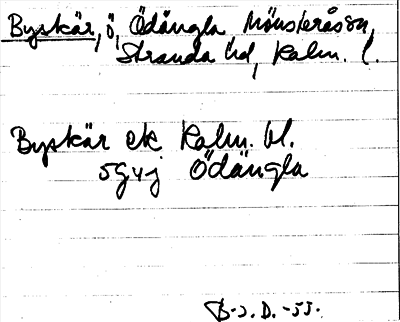 Byskär, ö, Ödängla, Mönsterås sn,
Stranda hd, Kalm. l.
Byskär ek Kalm. bl.
5g4j Ödängla
B-J. D. -55.